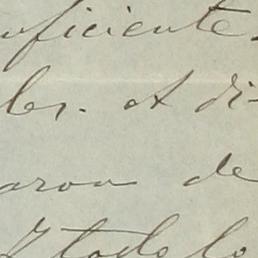 uficiente.
les. A di-
aron de
Y todo lo